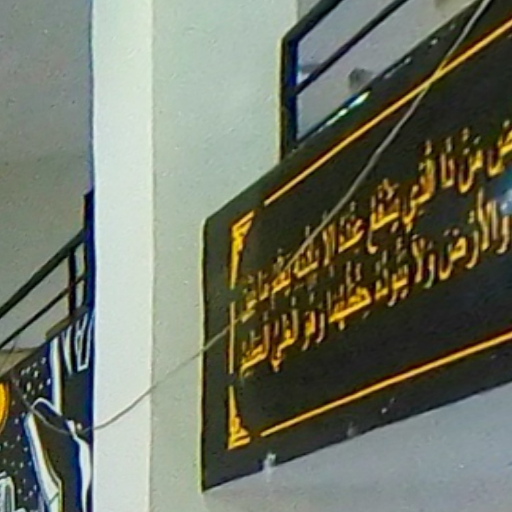 مَنْ ذَا الَّذِي يَشْفَعُ عِنْدَهُ إِلَّا بِإِذْنِهِ يَعْلَمُ مَا بَيْنَ
وَالْأَرْضَ وَلَا يَئُودُهُ حِفْظُهُمَا وَهُوَ الْعَلِيُّ الْعَظِيمُ